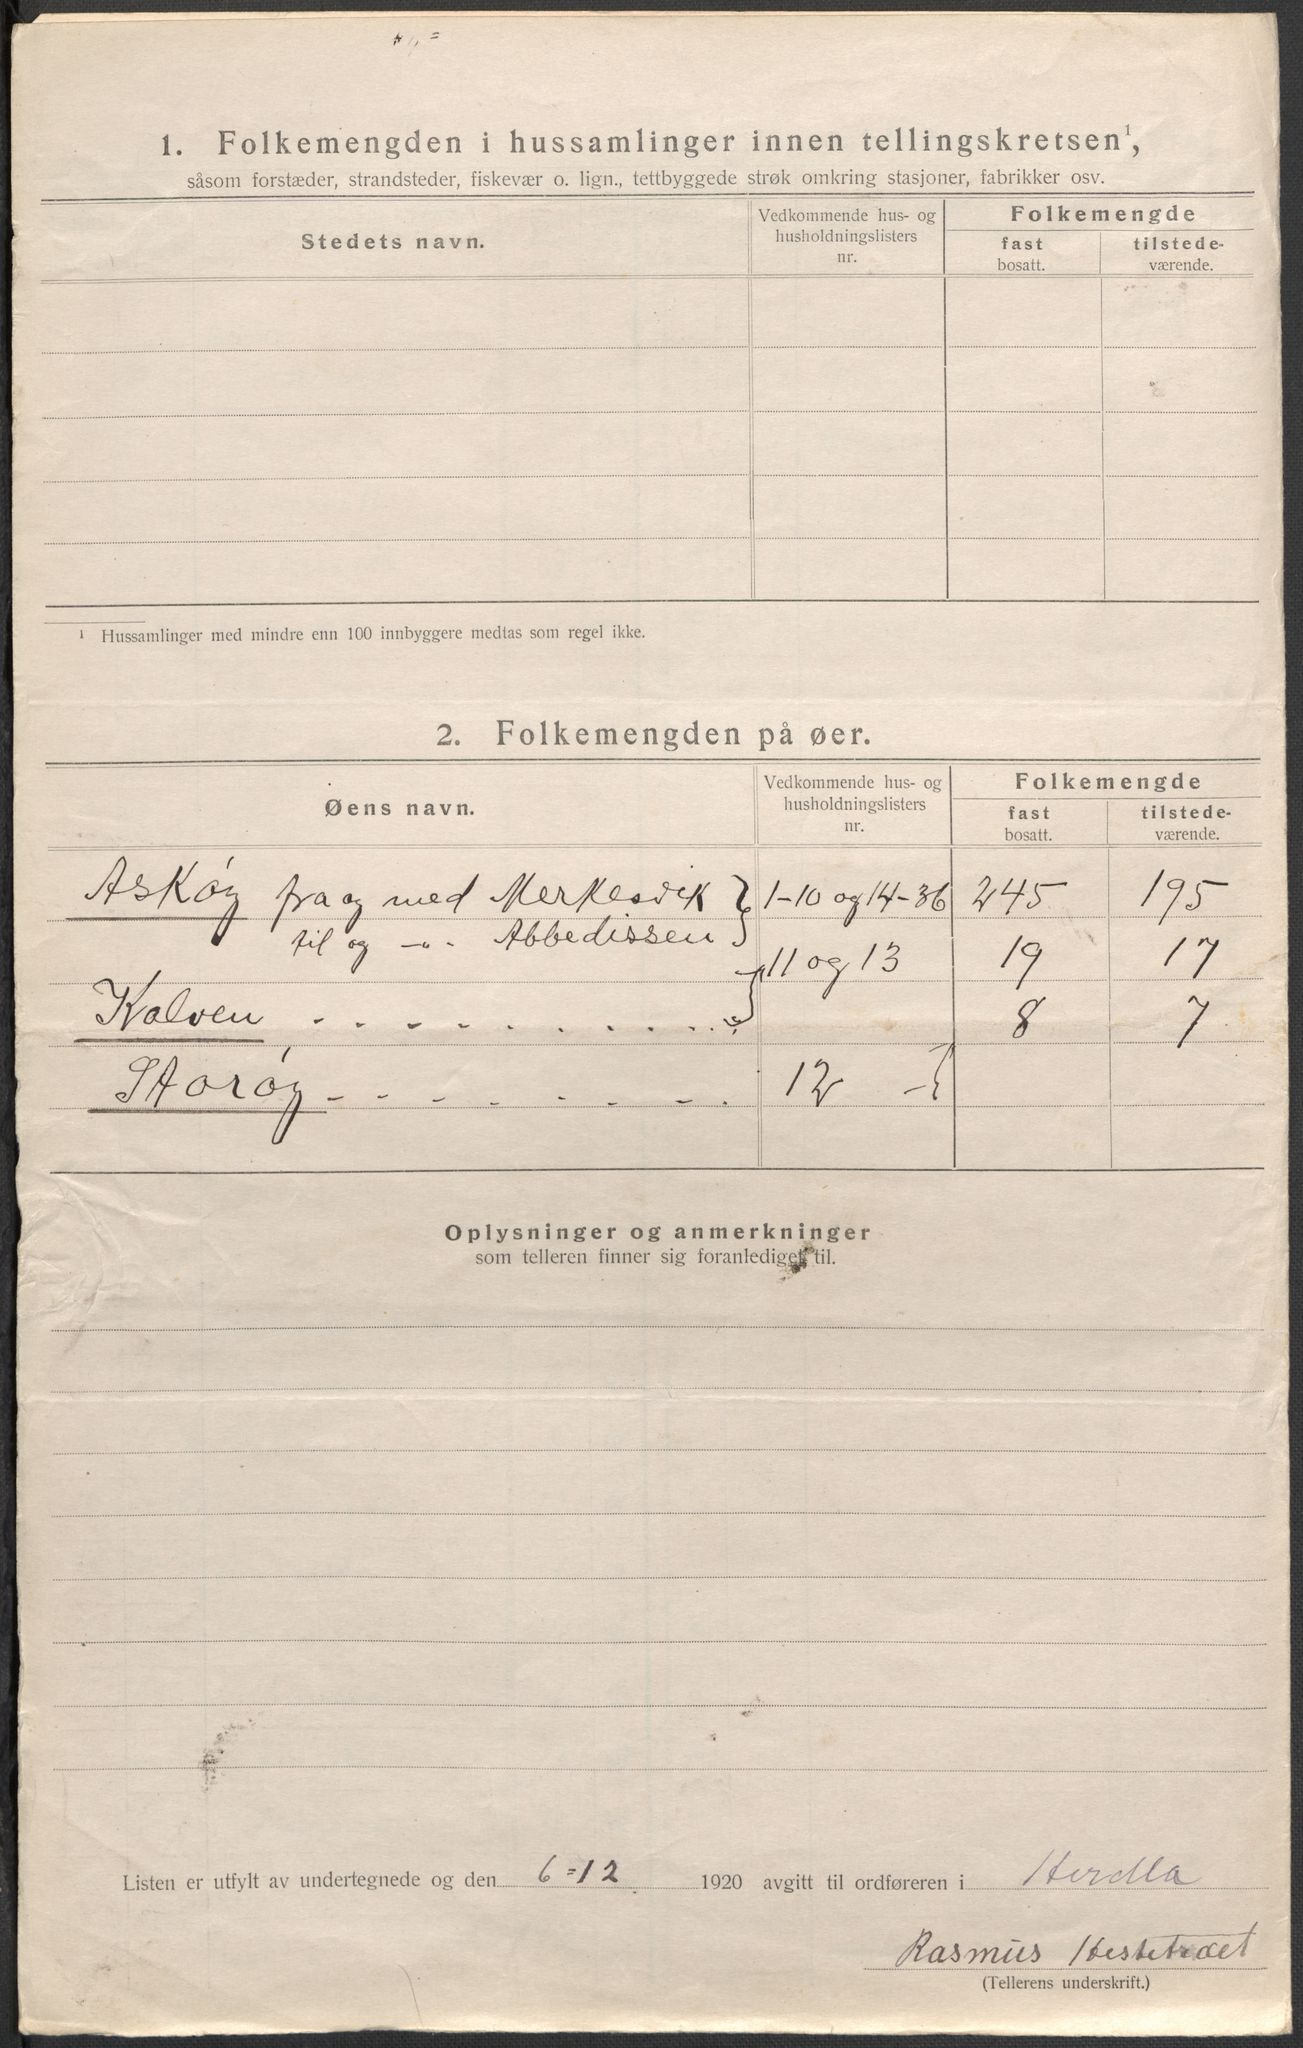 1. Folkemengden i hussamlinger innen tellingskretsen¹,
såsom forstæder, strandsteder, fiskevær o. lign., tettbyggede strøk omkring stasjoner, fabrikker osv.
Stedets navn.
Vedkommende hus- og
husholdningslisters
nr.
Folkemengde
fast
bosatt.
tilstede-
værende.
¹ Hussamlinger med mindre enn 100 innbyggere medtas som regel ikke.
2. Folkemengden på øer.
Øens navn.
Vedkommende hus- og
husholdningslisters
nr.
Folkemengde
fast
bosatt.
tilstede-
værende.
Askøy fra og med Merkesvik } 1-10 og 14-36 245 195
til og -"- Abbedissen
11 og 13 19 17
Kalven - - - - - - - - - - 8 7
Storøy - - - - - - - - 12
Oplysninger og anmerkninger
som telleren finner sig foranlediget til.
Listen er utfylt av undertegnede og den 6=12 1920 avgitt til ordføreren i Herdla
Rasmus Hestetræet
(Tellerens underskrift.)